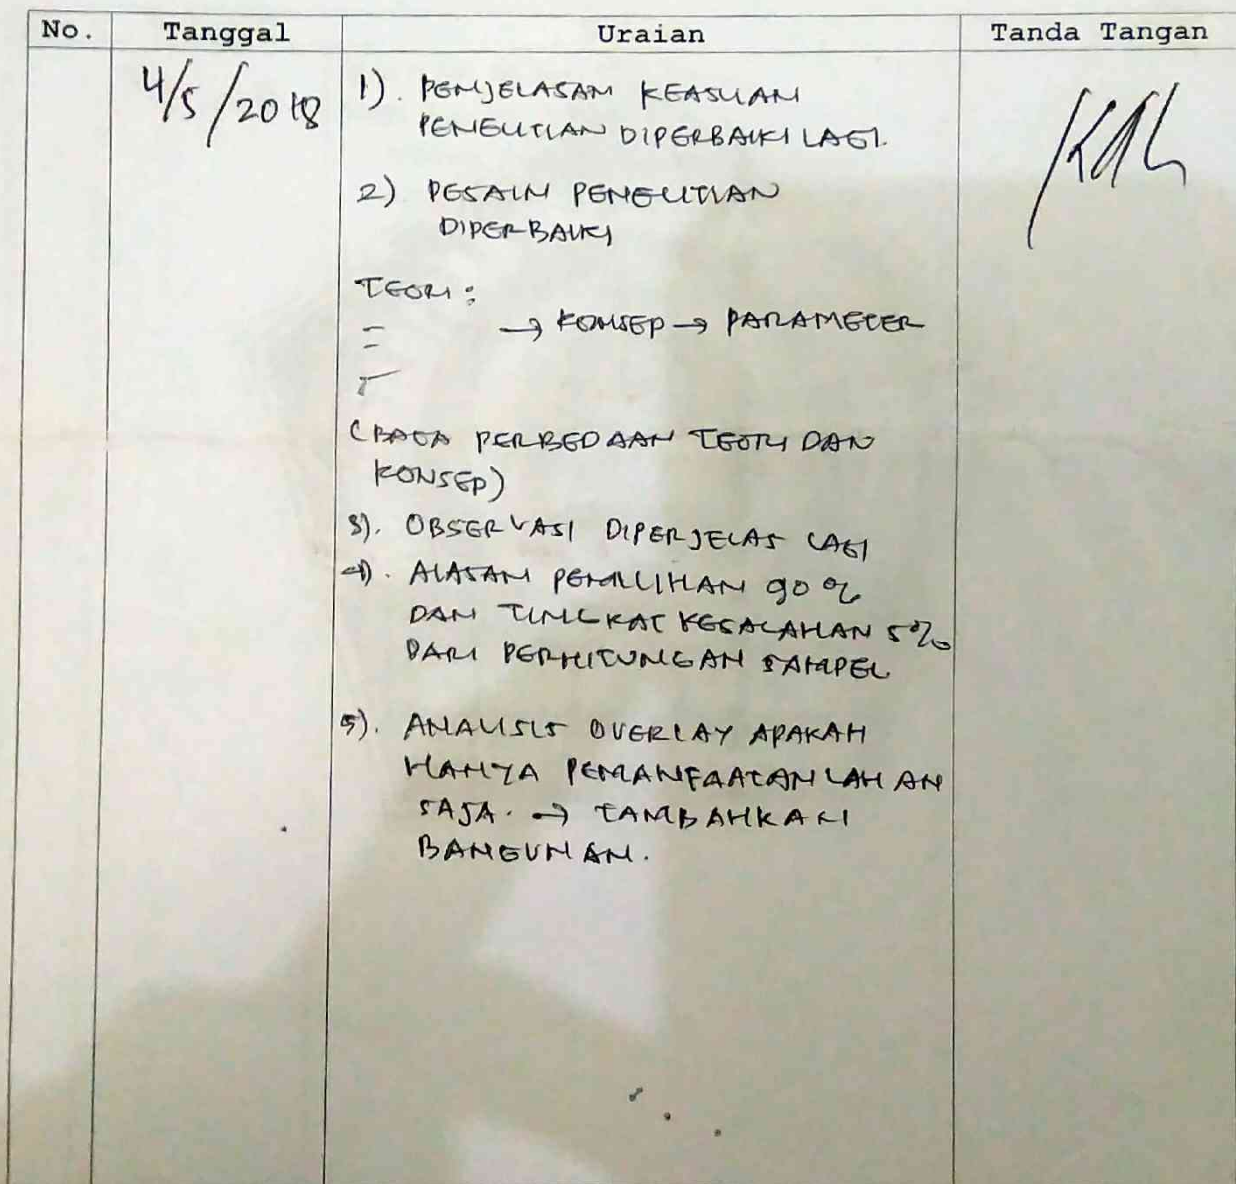 No. Tanggal Uraian Tanda Tangan
4/5/2018
1). PENJELASAN KEASLIAN
PENELITIAN DIPERBAIKI LAGI.
2) DESAIN PENELITIAN
DIPERBAIKI
TEORI :
→ KONSEP → PARAMETER
(BACA PERBEDAAN TEORI DAN
KONSEP)
3). OBSERVASI DIPERJELAS LAGI
4). ALASAN PEMILIHAN 90%
DAN TINGKAT KESALAHAN 5%
DARI PERHITUNGAN SAMPEL
5). ANALISIS OVERLAY APAKAH
HANYA PEMANFAATAN LAHAN
SAJA. → TAMBAHKAN
BANGUNAN.